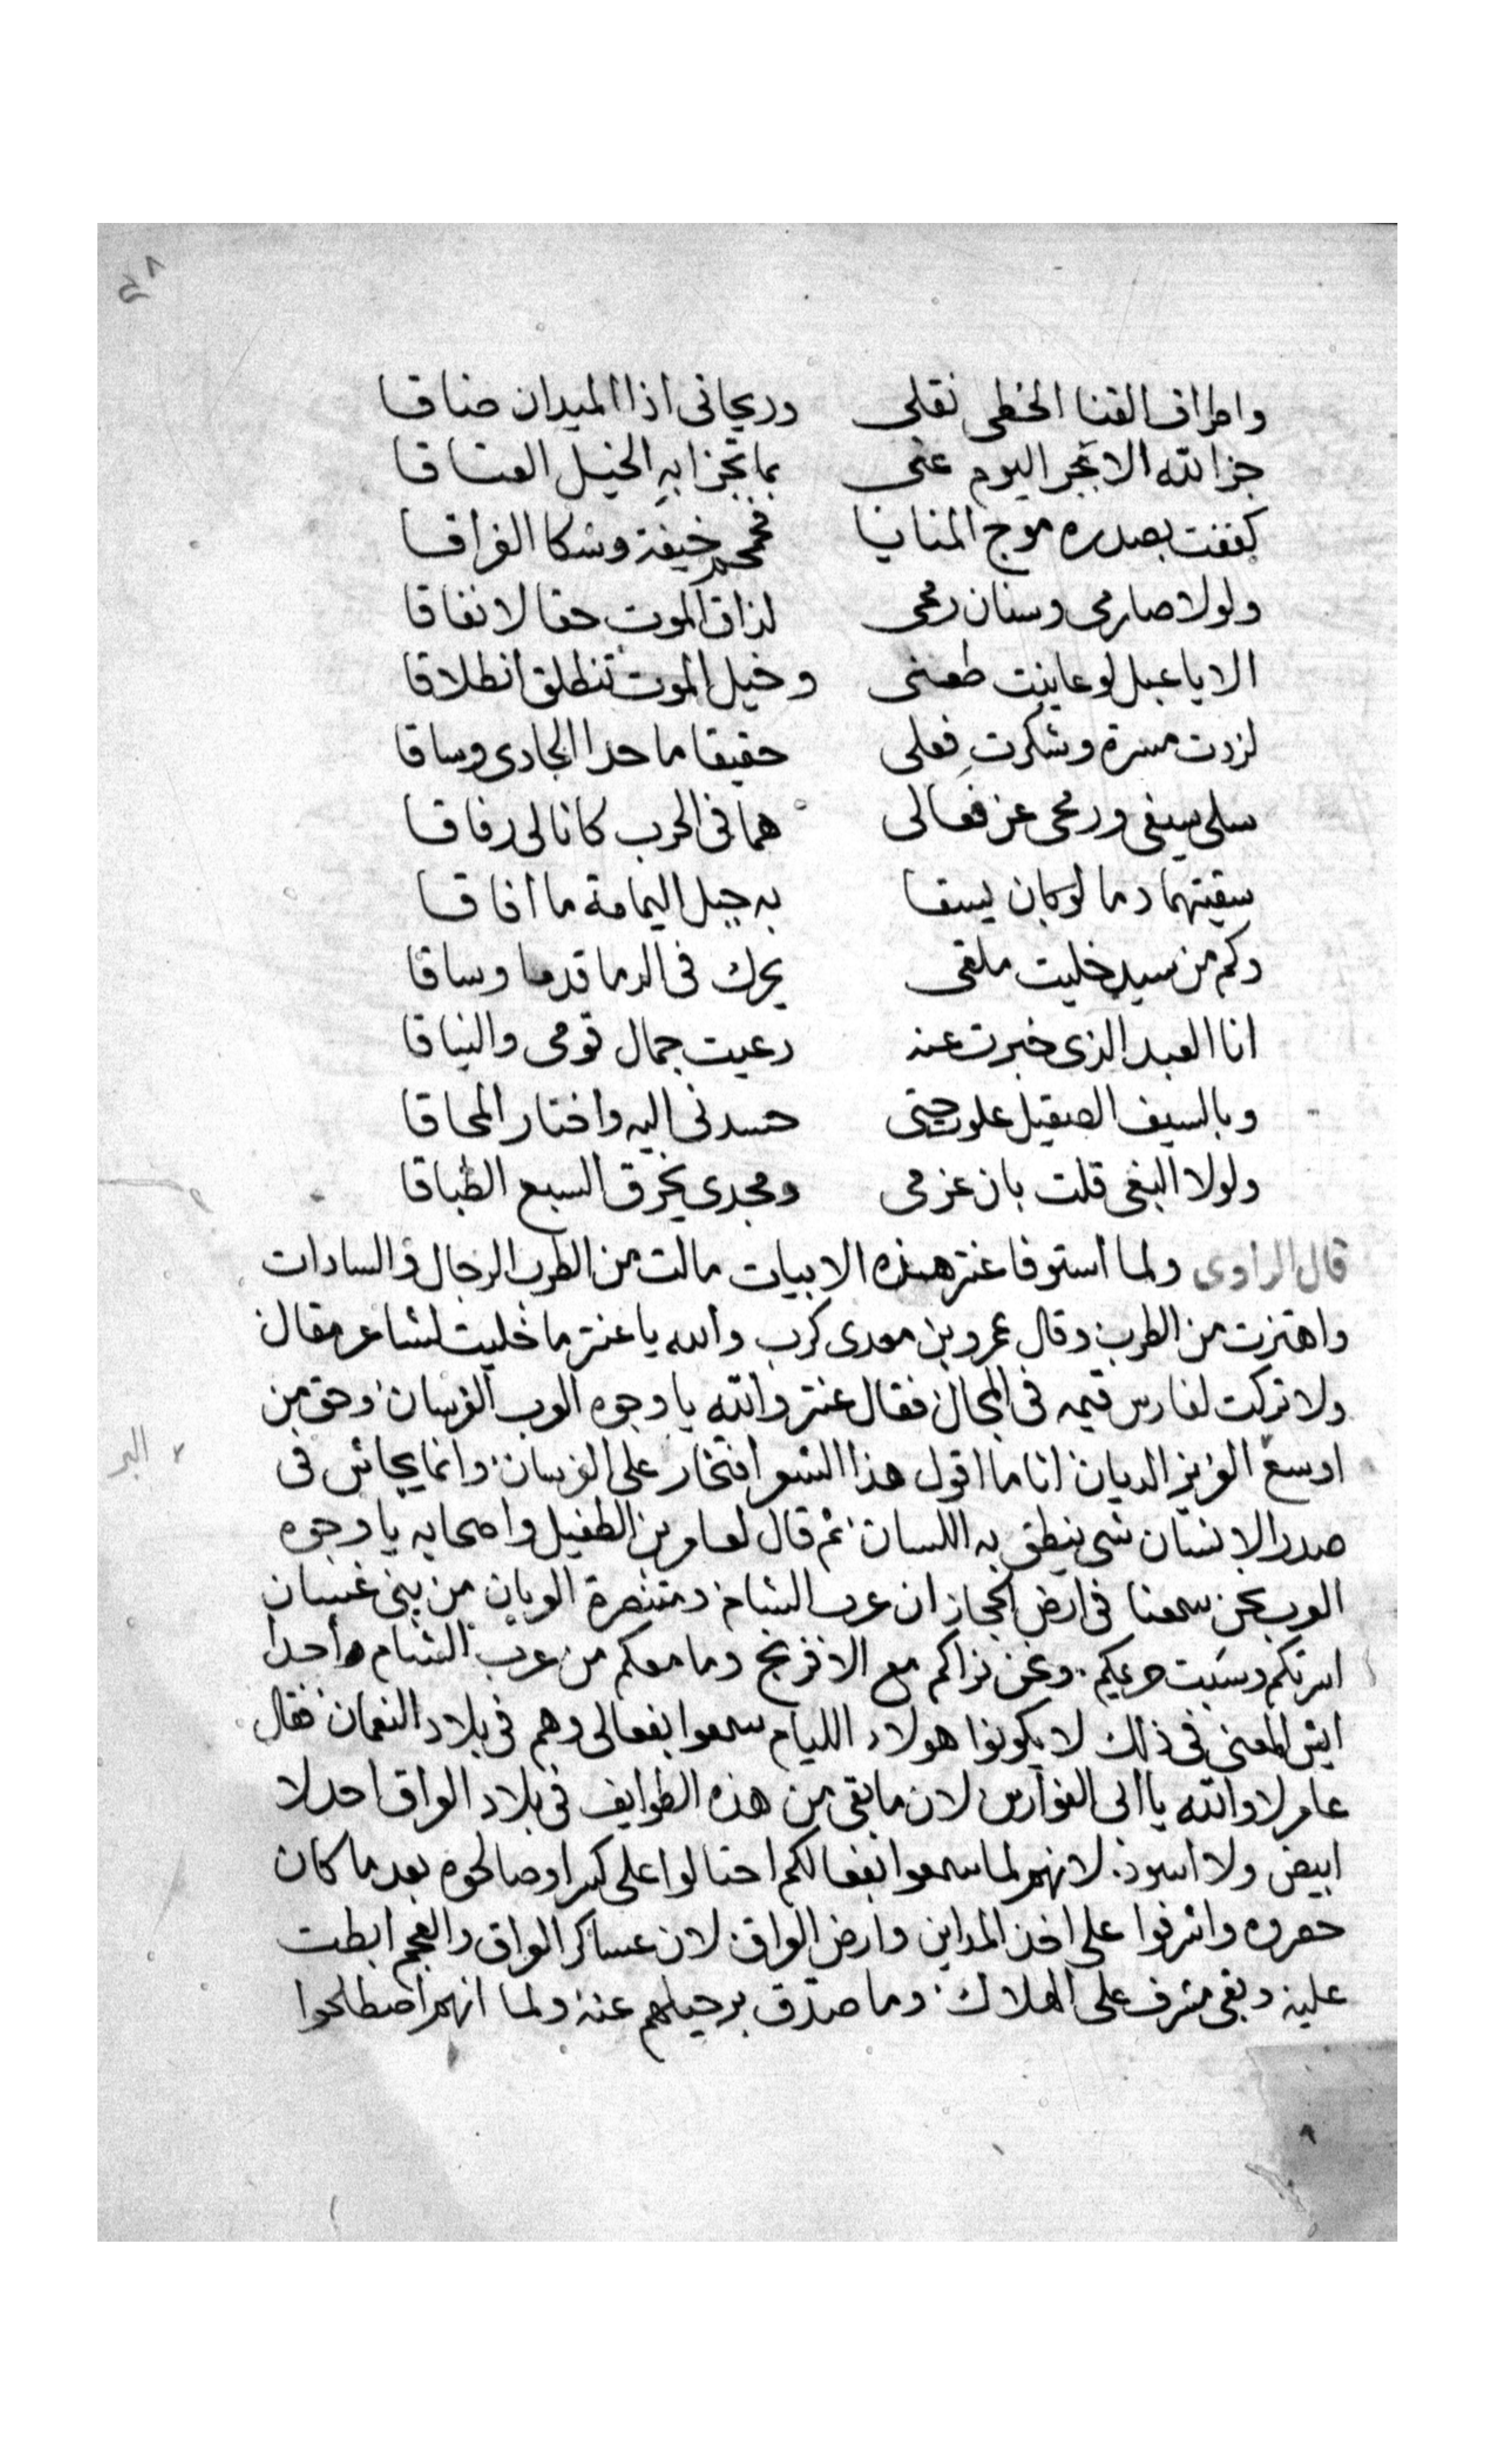 واطراف القنا الخطى نقلى وريحانى اذا الميدان ضاقا
جزا الله الابجر اليوم عنى بما تجزا به الخيل العتاقا
كففت بصدره موج المنايا فحمحم خيفة وشكا الفراقا
ولولا صارمى وسنان رمحى لذاق الموت حقا لا نفاقا
الا يا عبل لو عاينت طعنى وخيل الموت تنطلق انطلاقا
لزدت مسرة وشكرت فعلى حقيقا ما حدا الحادى وساقا
سلى سيفى ورمحى عن فعالى هما فى الحرب كانا لى رفاقا
سقيتهما دما لو كان يسقا به جبل اليمامة ما افاقا
وكم من سيد خليت ملقى يحرك فى الدما قدما وساقا
انا العبد الذى خبرت عنه رعيت جمال قومى والنياقا
وبالسيف الصقيل علوت حتى حسدنى اليه واختار المحاقا
ولولا البغى قلت بان عزمى ومجدى يخرق السبع الطباقا
قال الراوى ولما استوفا عنتر هذه الابيات مالت من الطرب الرجال والسادات
واهتزت من الطرب وقال عمرو بن معدى كرب والله يا عنتر ما خليت لشاعر مقال
ولا تركت لفارس قيمه فى المجال فقال عنتر والله يا وجوه العرب الفرسان وحق من
اوسع العزيز الديان انا ما اقول هذا الشعر افتخار على الفرسان وانما يجائش فى
البر
صدر الانسان شى ينطق به اللسان ثم قال لعامر بن الطفيل واصحابه يا وجوه
العرب نحن سمعنا فى ارض الحجاز ان عرب الشام ومتنصرة العربان من بنى غسان
اسرتكم وسبت حريمكم ونحن نراكم مع الافرنج وما معكم من عرب الشام احدا
ايش المعنى فى ذلك لا يكونوا هولاء الليام سمعوا بفعالى وهم فى بلاد النعمان فقال
عامر لا والله يا ابى الفوارس لان ما بقى من هذه الطوايف فى بلاد العراق احد لا
ابيض ولا اسود لانهم لما سمعوا بفعالكم احتالوا على كسرا وصالحوه بعد ما كان
حصروه واشرفوا على اخذ المداين وارض العراق لان عساكر العراق والعجم ابطت
عليه وبقى مشرف على الهلاك وما صدق برحيلهم عنه ولما انهم اصطلحوا